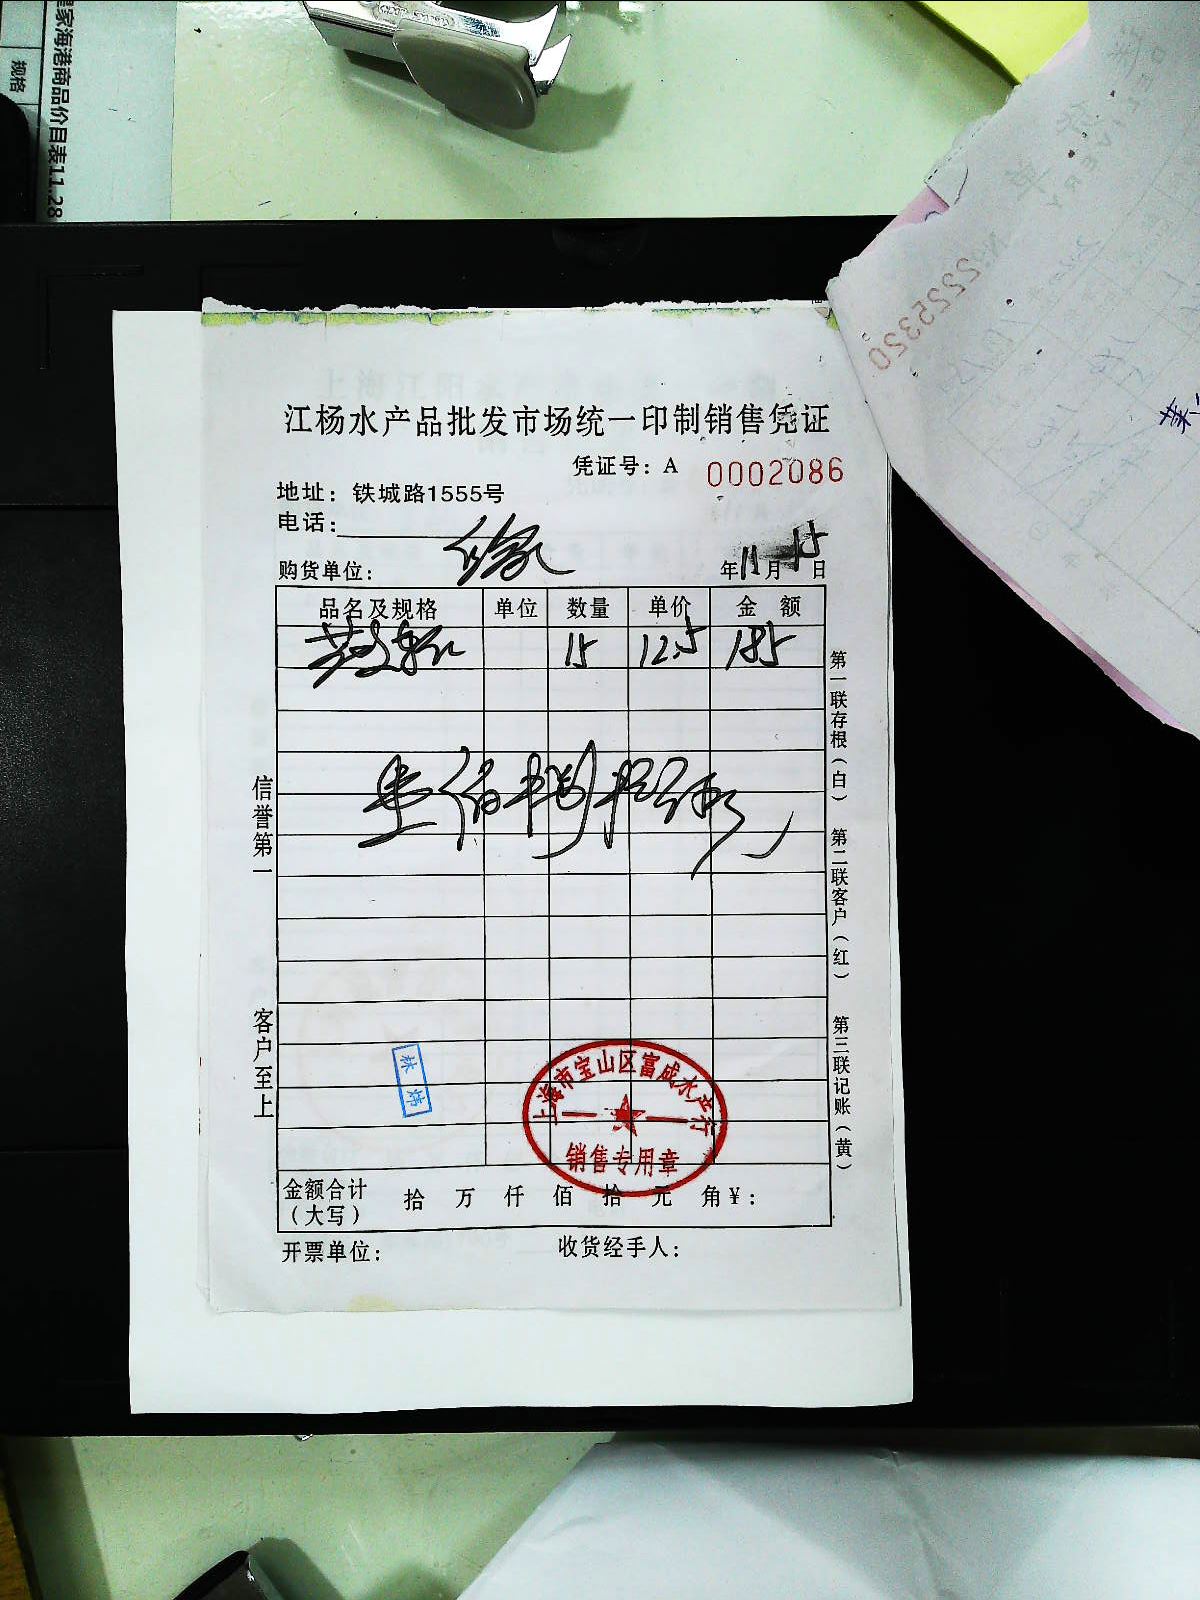 皇家海港商品价目表11.28
规格
江杨水产品批发市场统一印制销售凭证
凭证号：A 0002086
地址：铁城路1555号
电话：
购货单位：
年11月15日
品名及规格 单位 数量 单价 金 额
15 12.5 185
信誉第一
客户至上
第一联存根（白）
第二联客户（红）
第三联记账（黄）
林炜
上海市宝山区富成水产行
销售专用章
金额合计（大写） 拾 万 仟 佰 拾 元 角¥：
开票单位： 收货经手人：
DELIVERY
№5552350